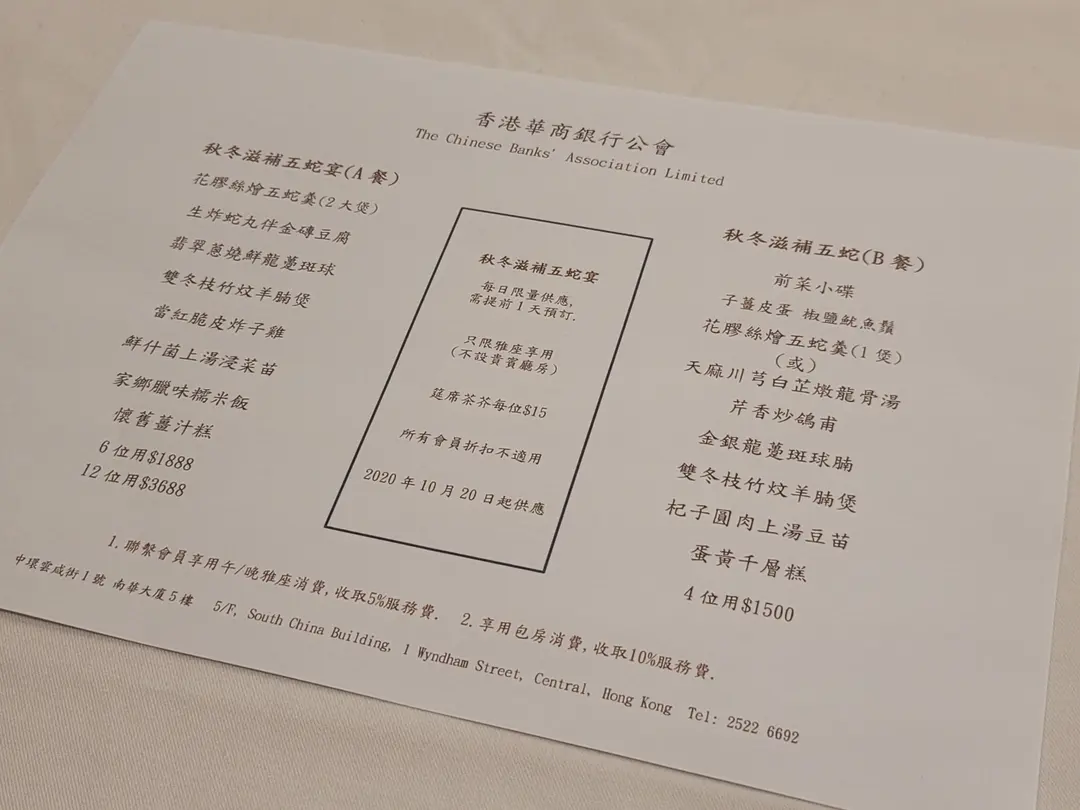 香港華商銀行公會
The Chinese Banks' Association Limited
秋冬滋補五蛇宴(A餐)
花膠絲燴五蛇羹(2大煲)
生炸蛇丸伴金磚豆腐
翡翠蔥燒鮮龍躉斑球
雙冬枝竹炆羊腩煲
當紅脆皮炸子雞
鮮什菌上湯浸菜苗
家鄉臘味糯米飯
懷舊薑汁糕
6位用$1888
12位用$3688
秋冬滋補五蛇宴
每日限量供應,
需提前1天預訂.
只限雅座享用
(不設貴賓廳房)
筵席茶芥每位$15
所有會員折扣不適用
2020年10月20日起供應
秋冬滋補五蛇(B餐)
前菜小碟
子薑皮蛋 椒鹽魷魚鬚
花膠絲燴五蛇羹(1煲)
(或)
天麻川芎白芷燉龍骨湯
芹香炒鴿甫
金銀龍躉斑球腩
雙冬枝竹炆羊腩煲
杞子圓肉上湯豆苗
蛋黃千層糕
4位用$1500
1.聯繫會員享用午/晚雅座消費,收取5%服務費. 2.享用包房消費,收取10%服務費.
中環雲咸街1號 南華大廈5樓 5/F, South China Building, 1 Wyndham Street, Central, Hong Kong Tel: 2522 6692